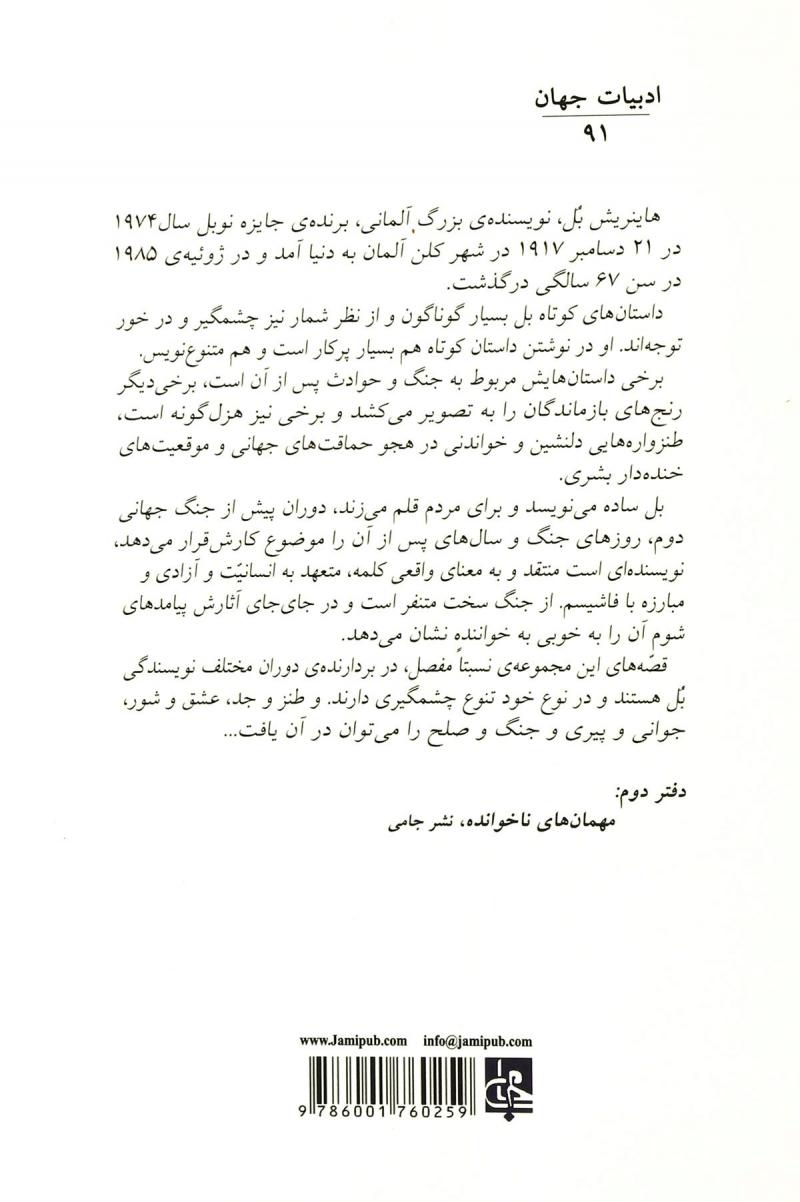 ادبیات جهان
۹۱
هاینریش بُل، نویسنده‌ی بزرگ آلمانی، برنده‌ی جایزه نوبل سال۱۹۷۴
در ۲۱ دسامبر ۱۹۱۷ در شهر کلن آلمان به دنیا آمد و در ژوئیه‌ی ۱۹۸۵
در سن ۶۷ سالگی درگذشت.
داستان‌های کوتاه بل بسیار گوناگون و از نظر شمار نیز چشمگیر و در خور
توجه‌اند. او در نوشتن داستان کوتاه هم بسیار پرکار است و هم متنوع‌نویس.
برخی داستان‌هایش مربوط به جنگ و حوادث پس از آن است، برخی‌دیگر
رنج‌های بازماندگان را به تصویر می‌کشد و برخی نیز هزل‌گونه است،
طنزواره‌هایی دلنشین و خواندنی در هجو حماقت‌های جهانی و موقعیت‌های
خنده‌دار بشری.
بل ساده می‌نویسد و برای مردم قلم می‌زند، دوران پیش از جنگ جهانی
دوم، روزهای جنگ و سال‌های پس از آن را موضوع کارش‌قرار می‌دهد،
نویسنده‌ای است منتقد و به معنای واقعی کلمه، متعهد به انسانیّت و آزادی و
مبارزه با فاشیسم. از جنگ سخت متنفر است و در جای‌جای آثارش پیامدهای
شوم آن را به خوبی به خواننده نشان می‌دهد.
قصّه‌های این مجموعه‌ی نسبتاً مفصل، در بردارنده‌ی دوران مختلف نویسندگی
بُل هستند و در نوع خود تنوع چشمگیری دارند. و طنز و جد، عشق و شور،
جوانی و پیری و جنگ و صلح را می‌توان در آن یافت...
دفتر دوم:
مهمان‌های ناخوانده، نشر جامی
www.Jamipub.com info@jamipub.com
9 786001 760259